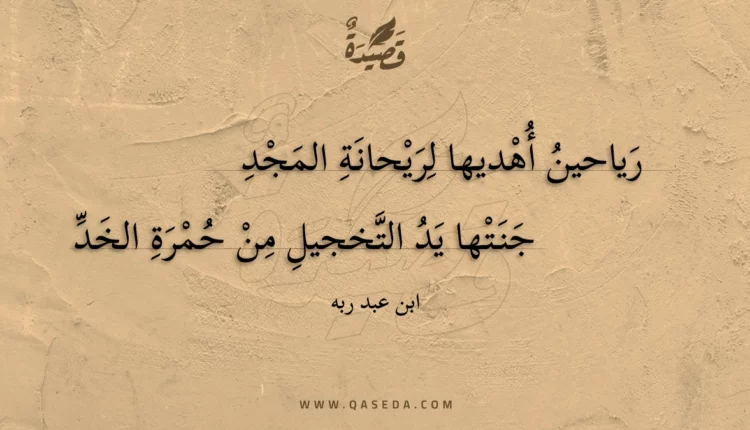 قَصِيْدَةٌ
رَياحينُ أُهْديها لِرَيْحانَةِ المَجْدِ
جَنَتْها يَدُ التَّخجيلِ مِنْ حُمْرَةِ الخَدِّ
ابن عبد ربه
WWW.QASEDA.COM